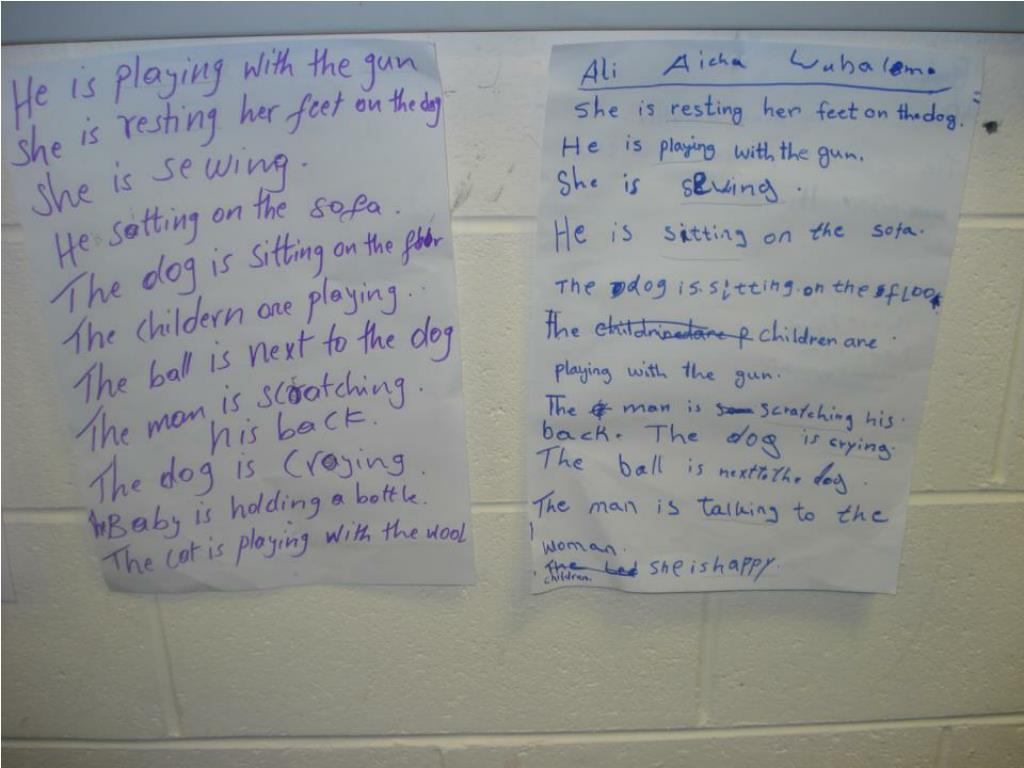 He is playing with the gun
She is resting her feet on the dog
She is sewing.
He sitting on the sofa.
The dog is sitting on the floor
The childern are playing..
The ball is next to the dog
The man is scratching.
his back.
The dog is Craying.
Baby is holding a bottle.
The cat is playing with the wool
Ali Aicha
She is resting her feet on the dog.
He is playing with the gun.
She is sewing.
He is sitting on the sofa.
The dog is sitting on the floor
The children are
playing with the gun.
The man is scratching his
back. The dog is crying.
The ball is next to the dog.
The man is talking to the
woman.
She is happy.
children.